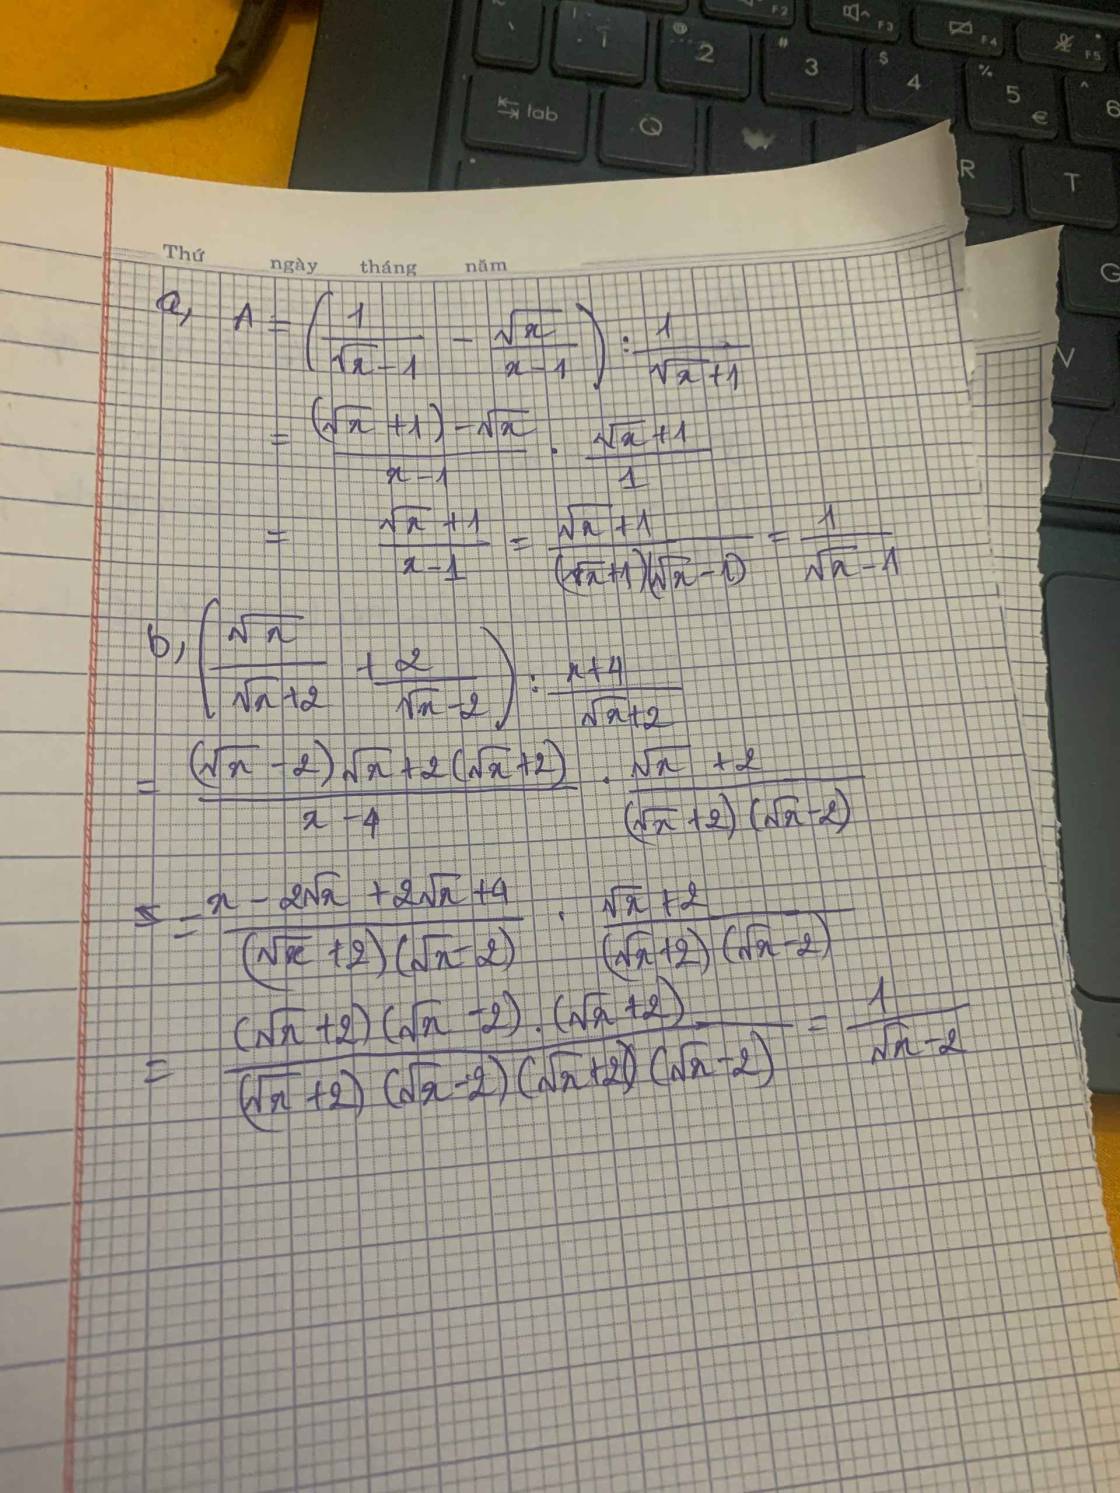 F2 F3 F4 F5
1 2 # 3 $ 4 % 5 € ^ 6
tab Q R T
G
V
Thứ ngày tháng năm
a, A = (1/(√x-1) - √x/(x-1)) : 1/(√x+1)
= ((√x+1)-√x)/(x-1) . (√x+1)/1
= (√x+1)/(x-1) = (√x+1)/((√x+1)(√x-1)) = 1/(√x-1)
b, (√x/(√x+2) + 2/(√x-2)) : (x+4)/(√x+2)
= ((√x-2)√x+2(√x+2))/(x-4) . (√x+2)/((√x+2)(√x-2))
= (x-2√x+2√x+4)/((√x+2)(√x-2)) . (√x+2)/((√x+2)(√x-2))
= ((√x+2)(√x-2).(√x+2))/((√x+2)(√x-2)(√x+2)(√x-2)) = 1/(√x-2)